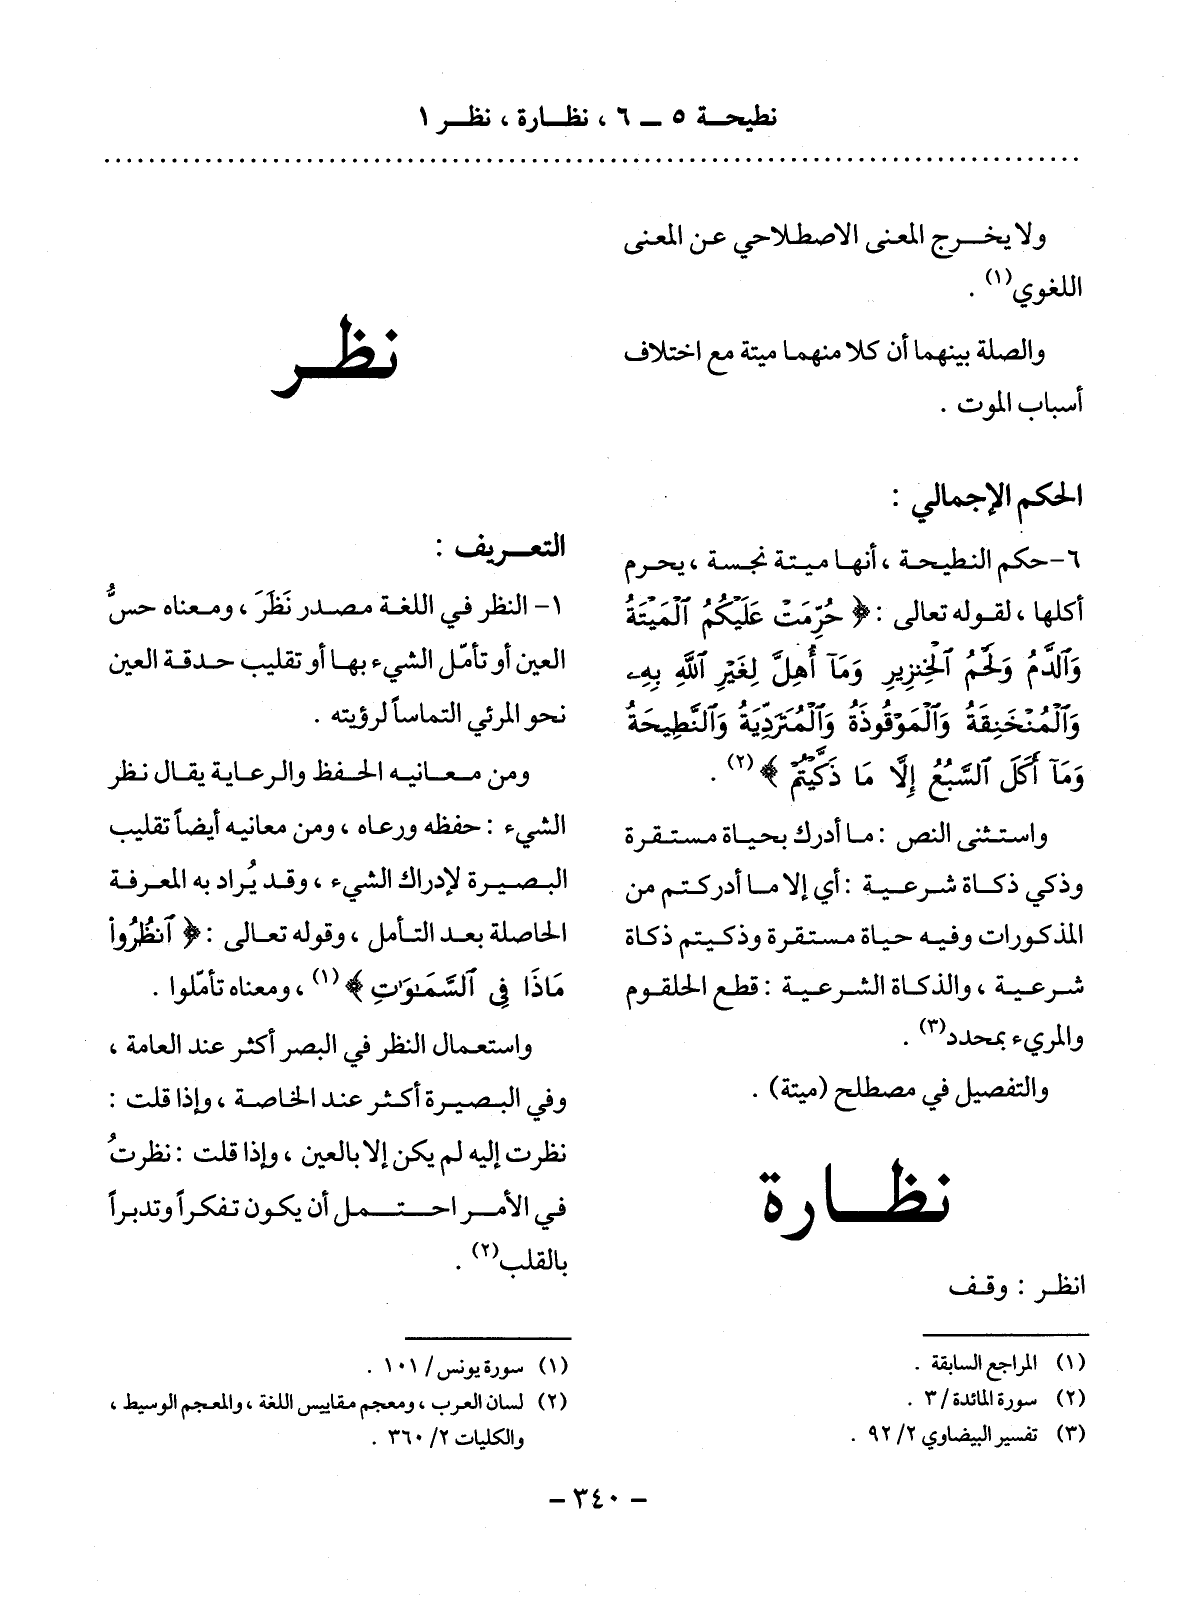 نطيحة ٥ ــ ٦ ، نظارة ، نظر ١
ولا يخرج المعنى الاصطلاحي عن المعنى
اللغوي(١) .
والصلة بينهما أن كلا منهما ميتة مع اختلاف
أسباب الموت .
الحكم الإجمالي :
٦- حكم النطيحة ، أنها ميتة نجسة ، يحرم
أكلها ، لقوله تعالى : ﴿ حُرِّمَتْ عَلَيْكُمُ ٱلْمَيْتَةُ
وَٱلدَّمُ وَلَحْمُ ٱلْخِنزِيرِ وَمَآ أُهِلَّ لِغَيْرِ ٱللَّهِ بِهِۦ
وَٱلْمُنْخَنِقَةُ وَٱلْمَوْقُوذَةُ وَٱلْمُتَرَدِّيَةُ وَٱلنَّطِيحَةُ
وَمَآ أَكَلَ ٱلسَّبُعُ إِلَّا مَا ذَكَّيْتُمْ ﴾(٢) .
واستثنى النص : ما أدرك بحياة مستقرة
وذكي ذكاة شرعية : أي إلا ما أدركتم من
المذكورات وفيه حياة مستقرة وذكيتم ذكاة
شرعية ، والذكاة الشرعية : قطع الحلقوم
والمريء بمحدد(٣) .
والتفصيل في مصطلح (ميتة) .
نظارة
انظر : وقف
(١) المراجع السابقة .
(٢) سورة المائدة / ٣ .
(٣) تفسير البيضاوي ٢/ ٩٢ .
نظر
التعريف :
١- النظر في اللغة مصدر نَظَرَ ، ومعناه حسُّ
العين أو تأمّل الشيء بها أو تقليب حدقة العين
نحو المرئي التماساً لرؤيته .
ومن معانيه الحفظ والرعاية يقال نظر
الشيء : حفظه ورعاه ، ومن معانيه أيضاً تقليب
البصيرة لإدراك الشيء ، وقد يُراد به المعرفة
الحاصلة بعد التأمل ، وقوله تعالى : ﴿ ٱنظُرُواْ
مَاذَا فِى ٱلسَّمَٰوَٰتِ ﴾(١) ، ومعناه تأمّلوا .
واستعمال النظر في البصر أكثر عند العامة ،
وفي البصيرة أكثر عند الخاصة ، وإذا قلت :
نظرت إليه لم يكن إلا بالعين ، وإذا قلت : نظرتُ
في الأمر احتمل أن يكون تفكراً وتدبراً
بالقلب(٢) .
(١) سورة يونس / ١٠١ .
(٢) لسان العرب ، ومعجم مقاييس اللغة ، والمعجم الوسيط ،
والكليات ٢/ ٣٦٠ .
- ٣٤٠ -